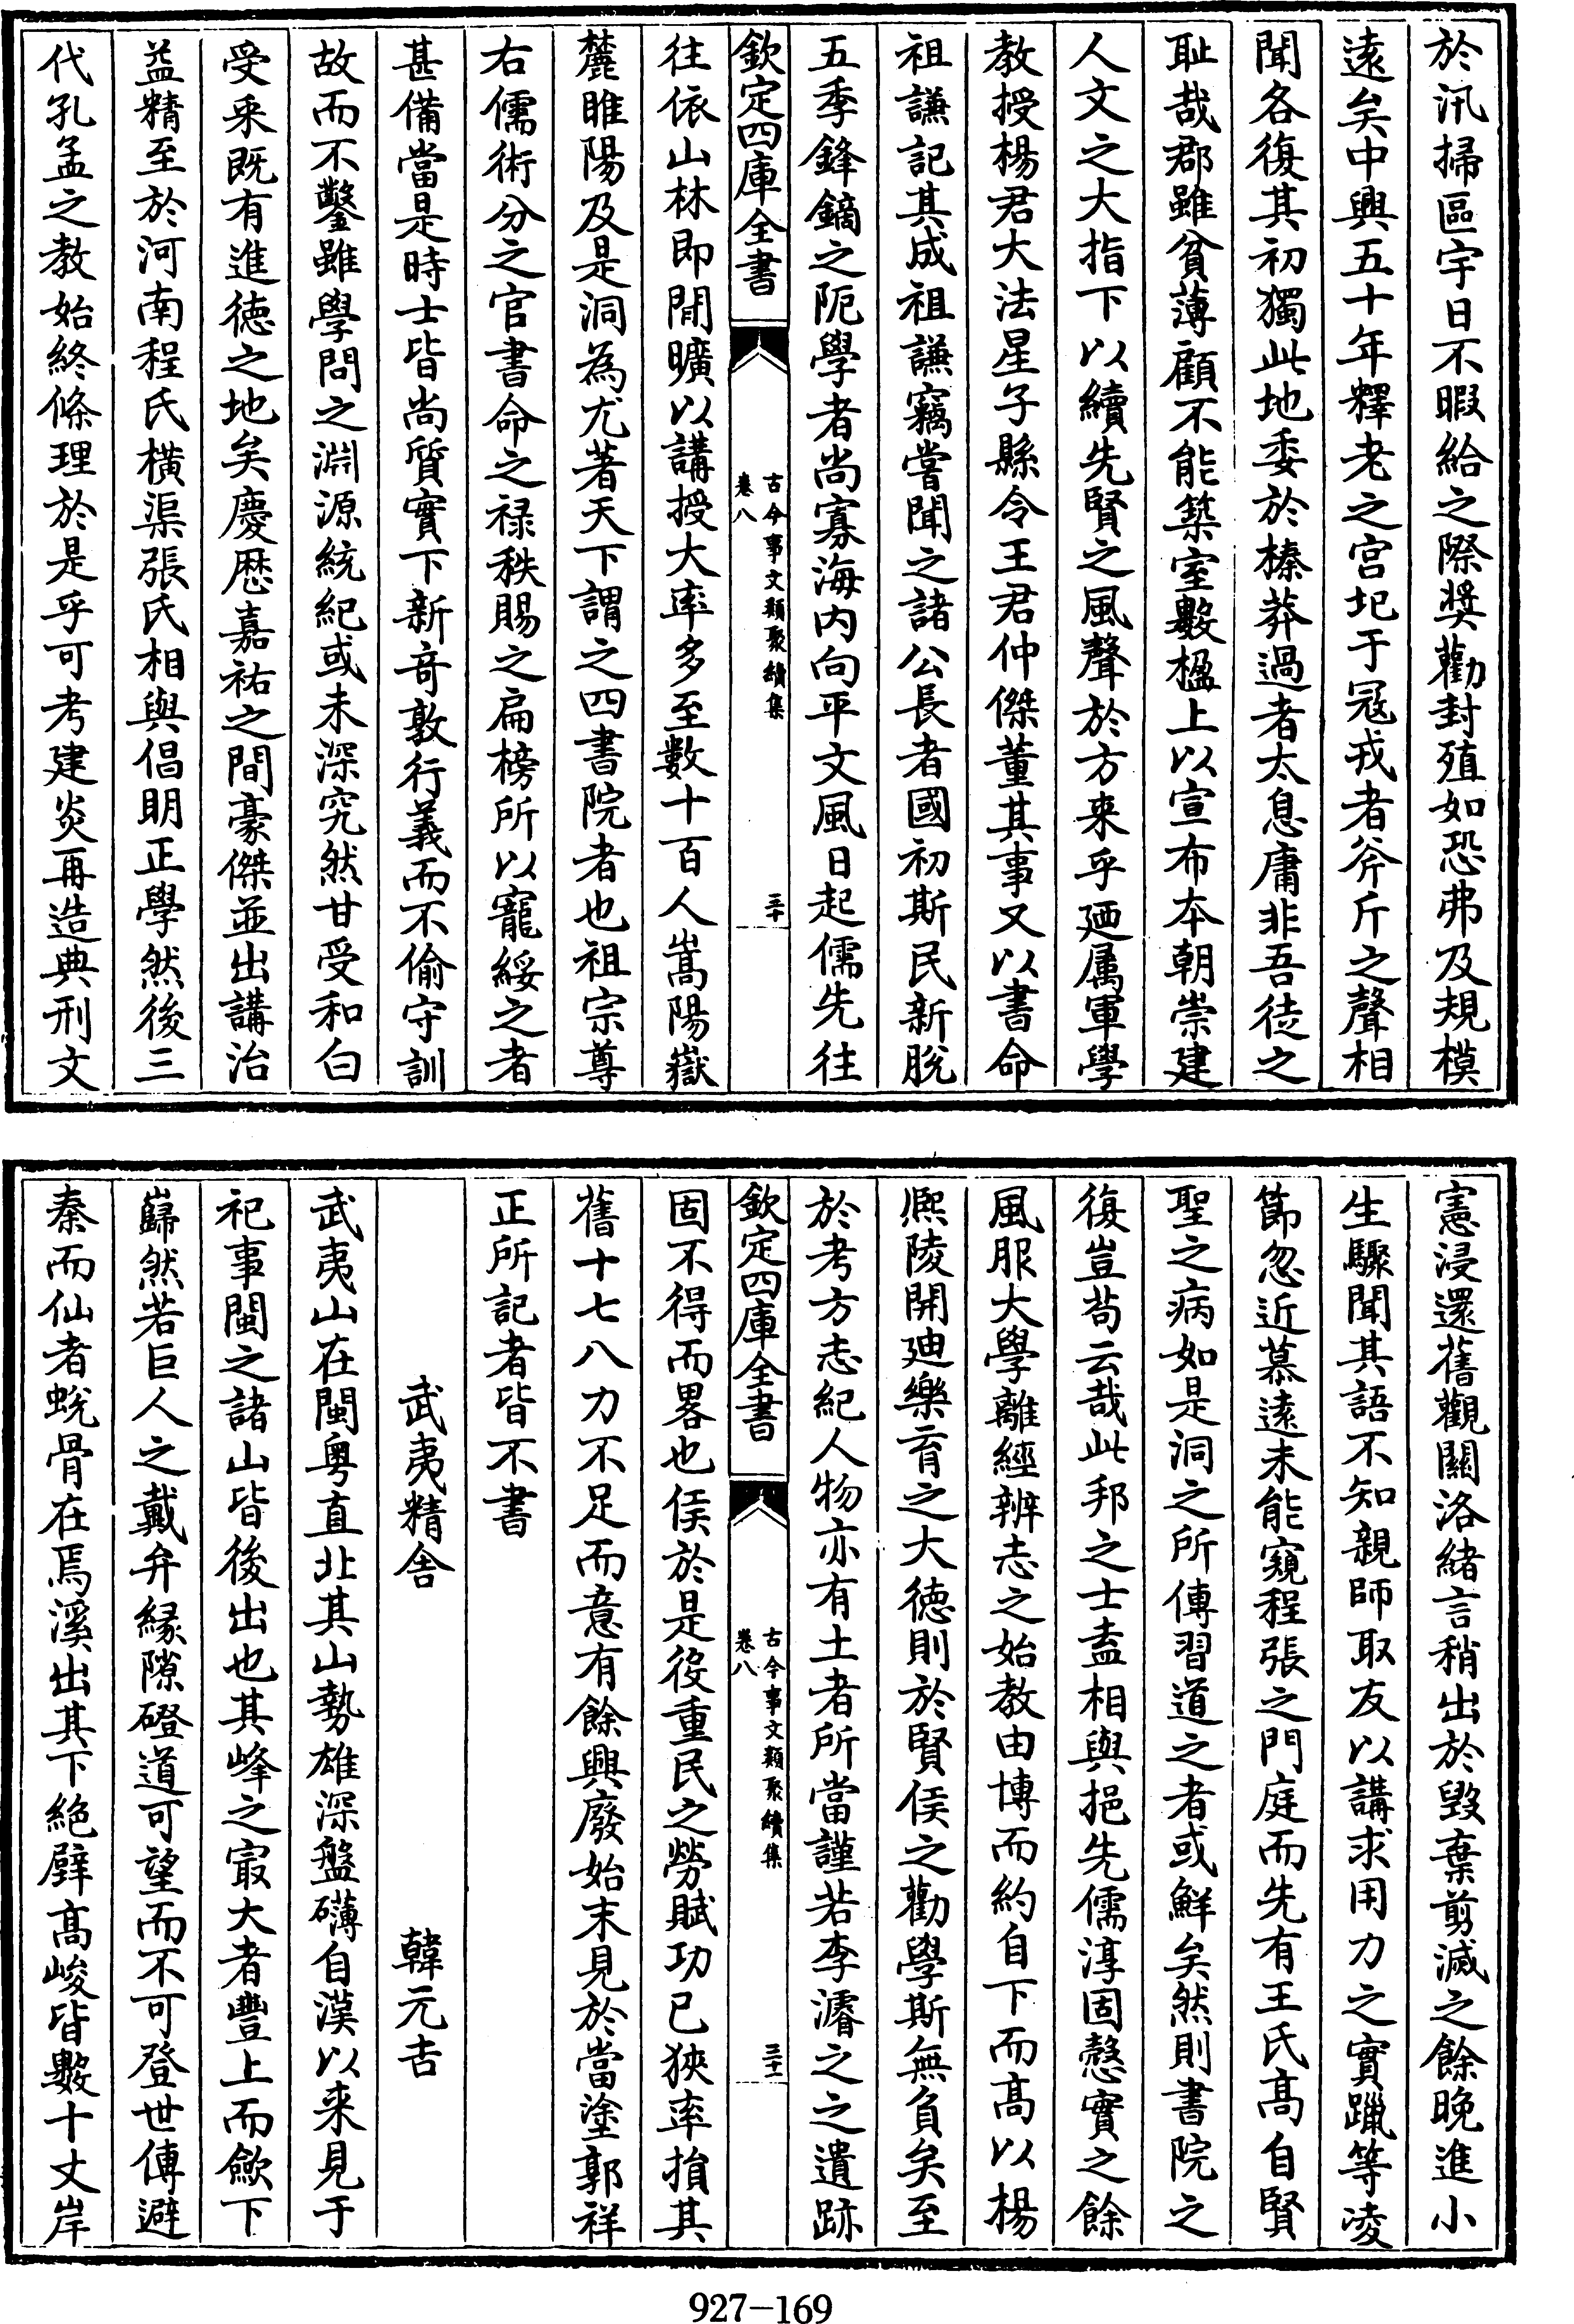 於汛掃區宇日不暇給之際奬勸封殖如恐弗及規模
遠矣中興五十年釋老之宫圮于冦戎者斧斤之聲相
聞各復其初獨此地委於榛莽過者太息庸非吾徒之
耻哉郡雖貧薄顧不能築室數楹上以宣布本朝崇建
人文之大指下以續先賢之風聲於方来乎廼属軍學
教授楊君大法星子縣令王君仲傑董其事又以書命
祖謙記其成祖謙竊嘗聞之諸公長者國初斯民新脱
五季鋒鏑之阨學者尚寡海内向平文風日起儒先往
欽定四庫全書
古今事文類聚續集
卷八
三十
往依山林即閒曠以講授大率多至數十百人嵩陽嶽
麓睢陽及是洞為尤著天下謂之四書院者也祖宗尊
右儒術分之官書命之禄秩賜之扁榜所以寵綏之者
甚備當是時士皆尚質實下新竒敦行義而不偷守訓
故而不鑿雖學問之淵源統紀或未深究然甘受和白
受采既有進徳之地矣慶厯嘉祐之間豪傑並出講治
益精至於河南程氏横渠張氏相與倡明正學然後三
代孔孟之教始終條理於是乎可考建炎再造典刑文
憲浸還舊觀關洛緒言稍出於毁棄剪滅之餘晚進小
生驟聞其語不知親師取友以講求用力之實躐等凌
節忽近慕遠未能窺程張之門庭而先有王氏髙自賢
聖之病如是洞之所傳習道之者或鮮矣然則書院之
復豈苟云哉此邦之士盍相與挹先儒淳固慤實之餘
風服大學離經辨志之始教由博而約自下而髙以揚
熈陵開廸樂育之大徳則於賢侯之勸學斯無負矣至
於考方志紀人物亦有土者所當謹若李濬之之遺跡
欽定四庫全書
古今事文類聚續集
卷八
三十一
固不得而畧也侯於是役重民之勞賦功已狹率損其
舊十七八力不足而意有餘興廢始末見於當塗郭祥
正所記者皆不書
武夷精舍 韓元吉
武夷山在閩粤直北其山勢雄深盤礴自漢以来見于
祀事閩之諸山皆後出也其峰之㝡大者豐上而歛下
巋然若巨人之戴弁縁隙磴道可望而不可登世傳避
秦而仙者蜕骨在焉溪出其下絶壁髙峻皆數十丈岸
927-169